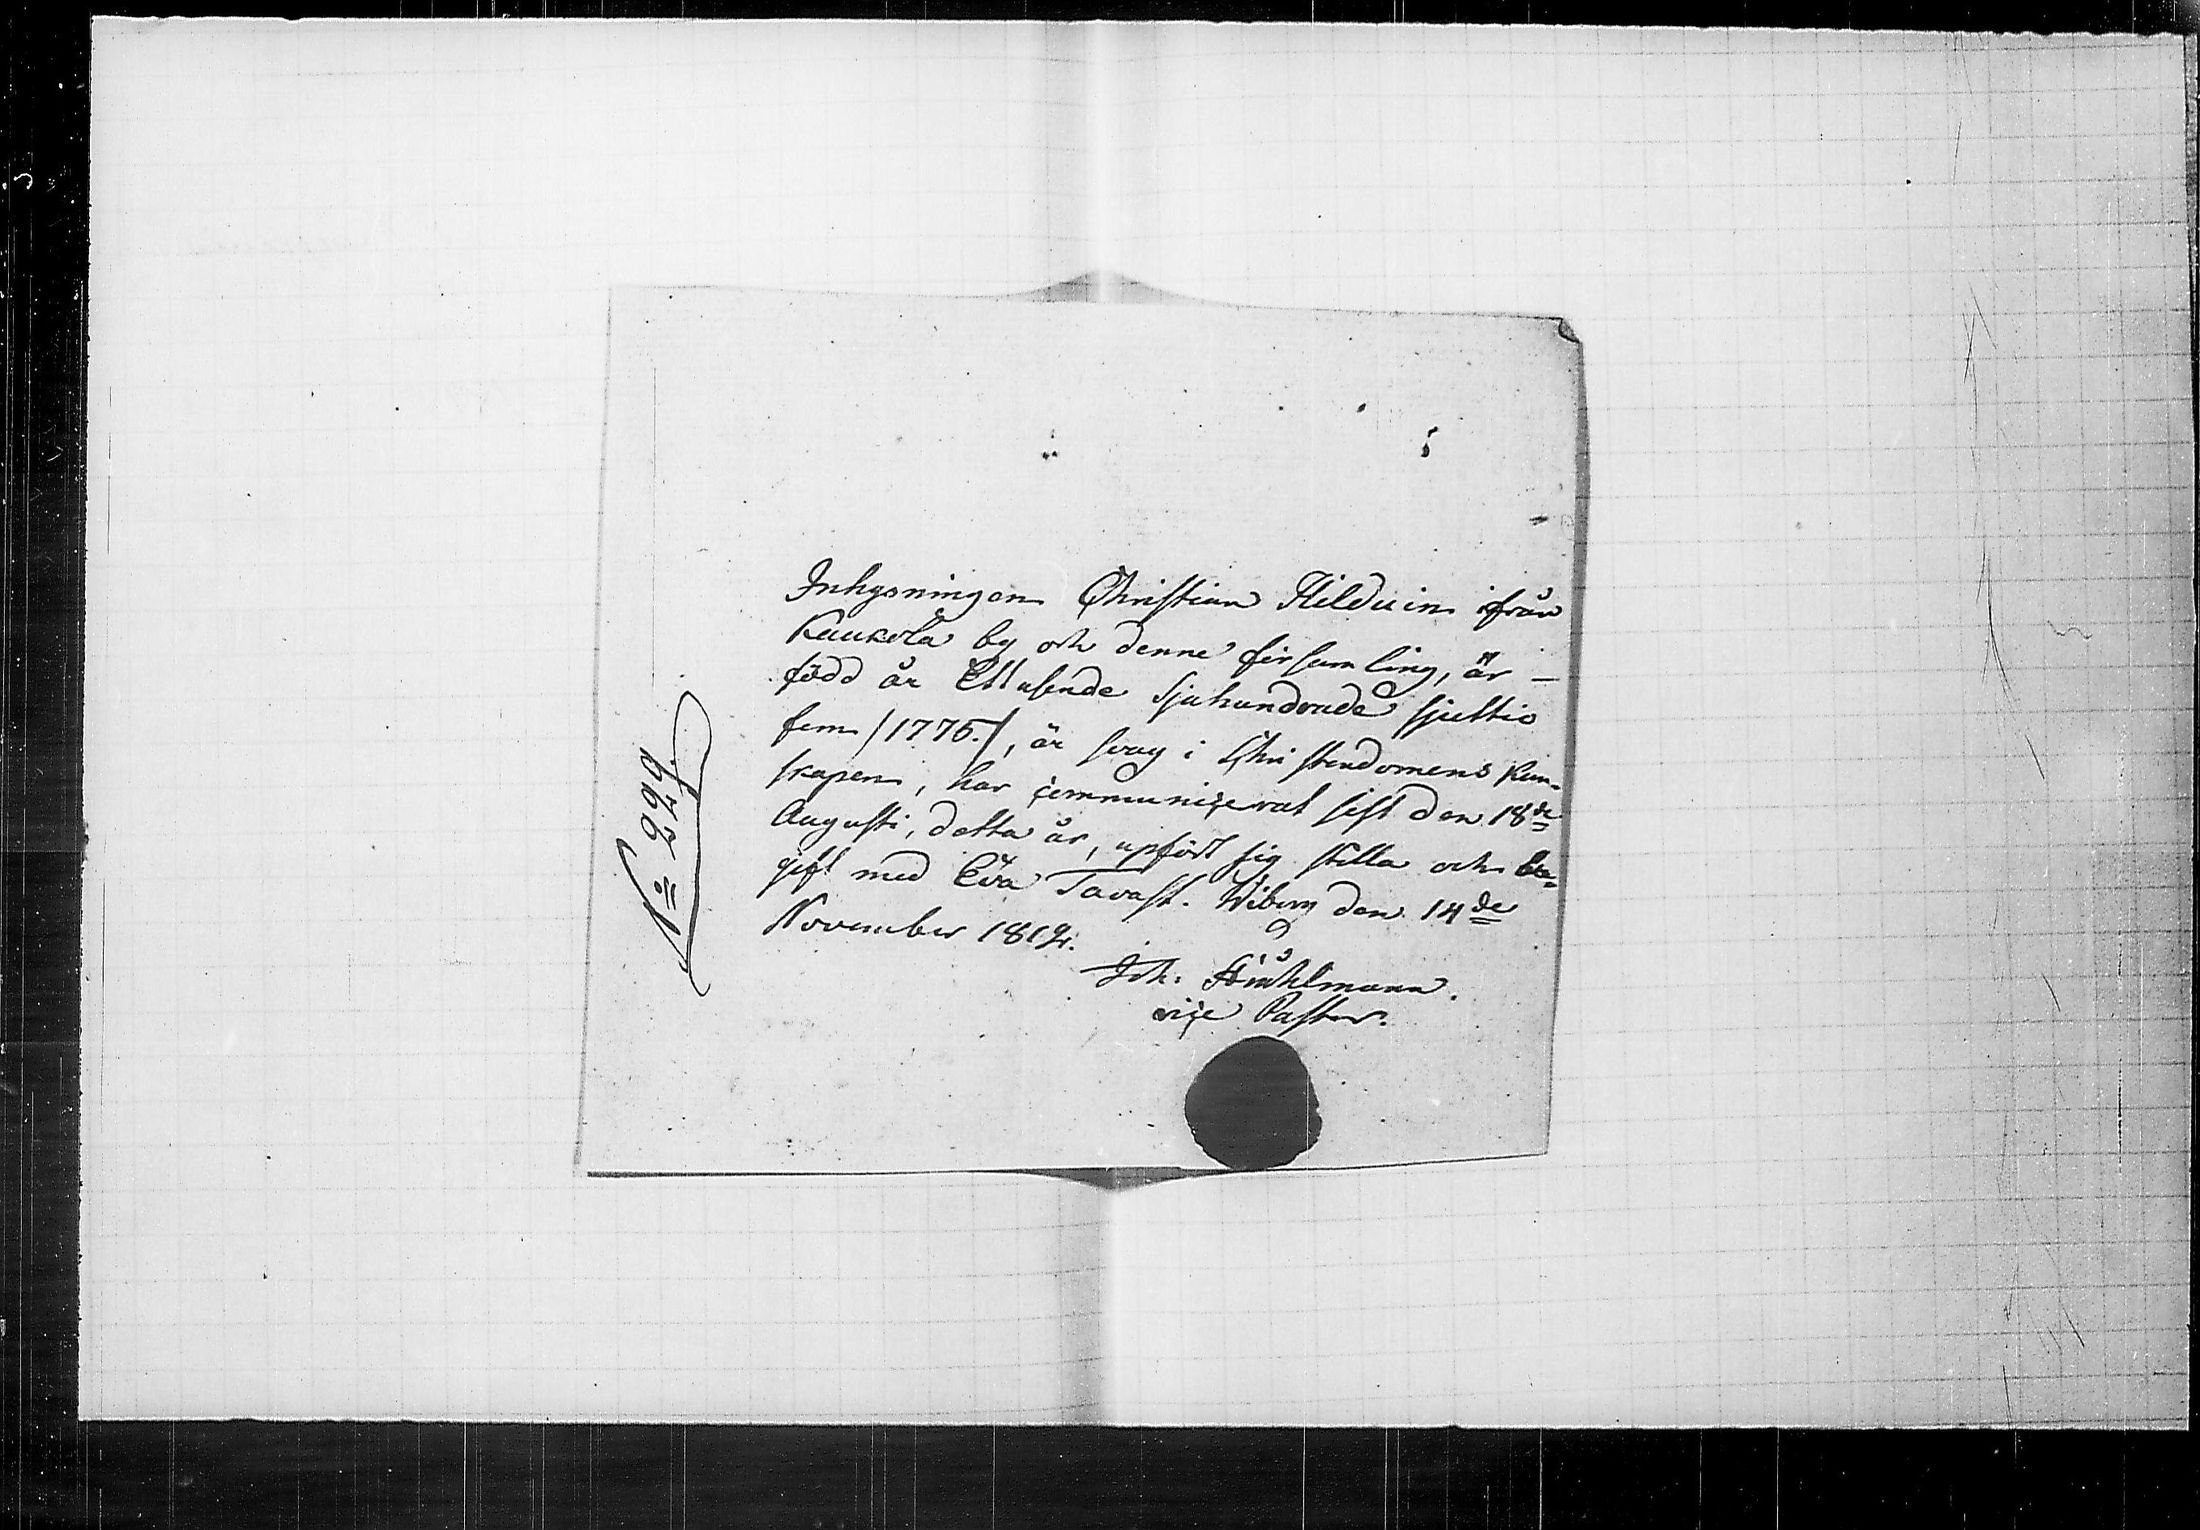 Inhysningen Christian Hilduin ifrån
Kaukola by och denne församling, är —
född år Ettusende sjuhundrade sjuttio
fem /1775./, är svag i Christendomens Kun-
skapen, har communicerat sist den 18de
Augusti, detta år, upfört sig stilla och bra,
gift med Eva Tavast. Wiburg den 14de
November 1812.
Joh:
vice Pastor.
No 229